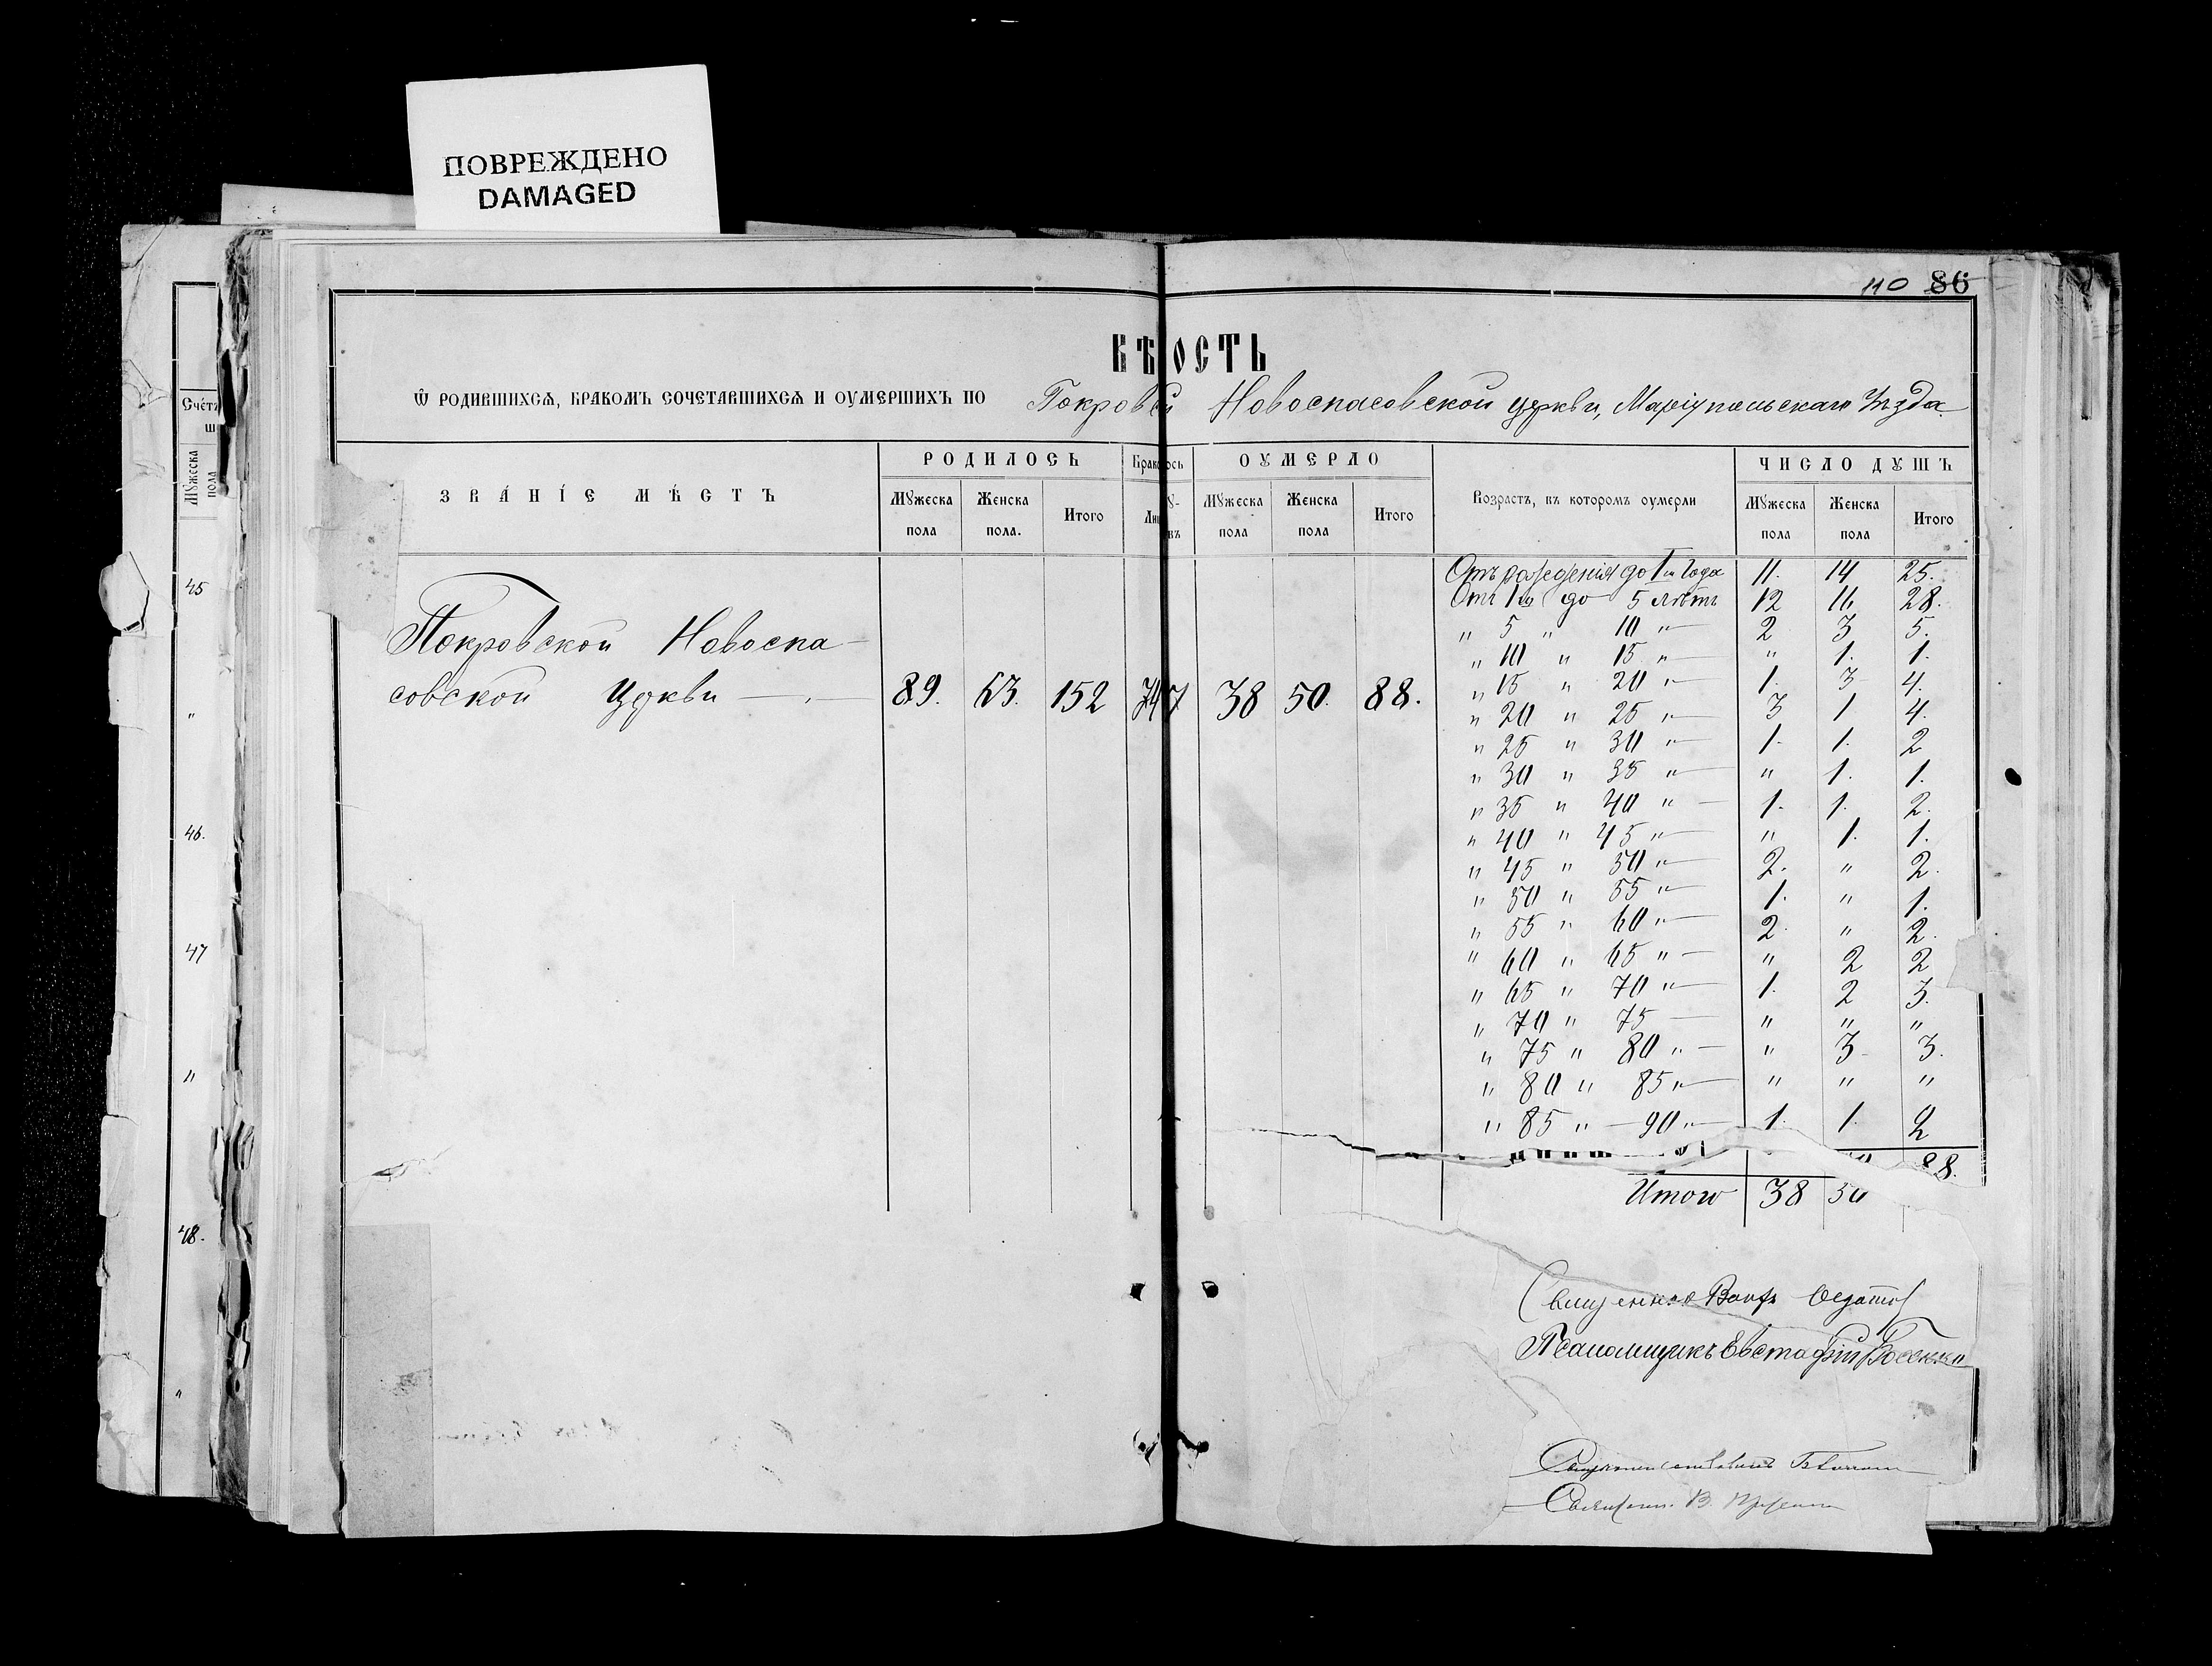 ПОВРЕЖДЕНО
DAMAGED
110 86
ВѢ ОСТЬ
Ѿ РОДИВШИХСѦ, БРАКОМЪ СОЧЕТАВШИХСѦ И ОУМЕРШИХЪ ПО Покров Новоспасовской церкви, Маріупольскаго Уѣзда.
ЗВА́НІЕ МѢ́СТЪ
РОДИЛОСЬ
Мꙋжеска пола
Женска пола.
Итого
Брако ось
ОУМЕРЛО
Мꙋжеска пола
Женска пола
Итого
Возрастъ, въ которомъ оумерли
ЧИСЛО ДꙊШЪ
Мꙋжеска пола
Женска пола
Итого
Покровской Новоспа-
совской Церкви — 89. 63. 152 74 7 38 50. 88.
Отъ рожденія до 1го Года 11. 14 25.
Отъ 1го до 5 лѣтъ 12 16 28.
„ 5 „ 10 „— 2 3 5.
„ 10 „ 15 „— „ 1. 1.
„ 15 „ 20 „— 1. 3 4.
„ 20 „ 25 „— 3 1 4.
„ 25 „ 30 „— 1. 1. 2
„ 30 „ 35 „— „ 1. 1.
„ 35 „ 40 „— 1. 1. 2.
„ 40 „ 45 „— „ 1. 1.
„ 45 „ 50 „— 2. „ 2.
„ 50 „ 55 „— 1. „ 1.
„ 55 „ 60 „— 2. „ 2.
„ 60 „ 65 „— „ 2 2
„ 65 „ 70 „— 1. 2 3.
„ 70 „ 75 — „ „ „
„ 75 „ 80 „— „ 3 3.
„ 80 „ 85 „— „ „ „
„ 85 „ — 90 „— 1. 1. 2
88.
Итого 38 50
Псаломщикъ Евстафій
Счетъ
Мꙋжеска пола
45
„
46.
47
„
48.
„